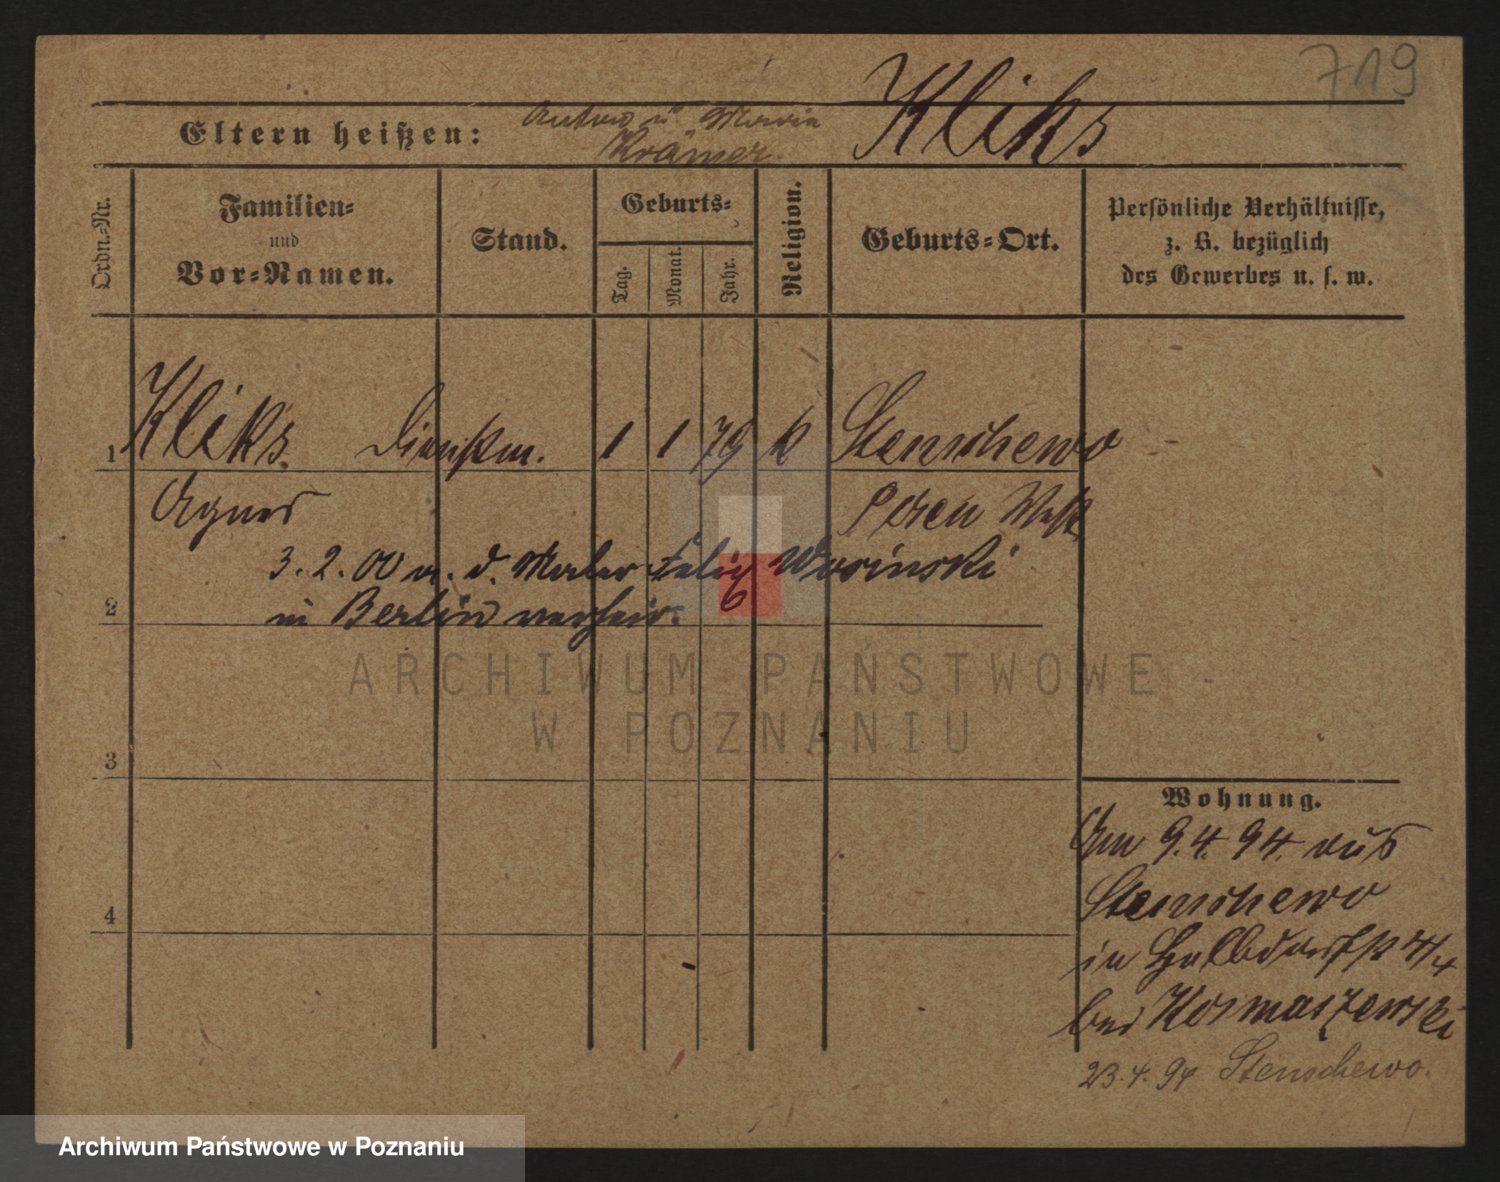 719
Kliks
Eltern heißen: Anton u Maria
Krämer
Ordn.-Nr.
Familien-
und
Vor-Namen.
Stand.
Geburts-
Tag.
Monat.
Jahr.
Religion.
Geburts-Ort.
Persönliche Verhältnisse,
z. B. bezüglich
des Gewerbes u. s. w.
1 Kliks Dienstm. 1 1 79 k Stenschewo
Agnes Posen West
3. 2. 00 m. d. Maler Felix
in Berlin verheir.
6
2
3
4
ARCHIWUM PAŃSTWOWE
W POZNANIU
Wohnung.
Am 9.4.94. aus
Stenschewo
in Halbdorfstr
bei Kosmaszewski
23.4.94 Stenschewo.
Archiwum Państwowe w Poznaniu